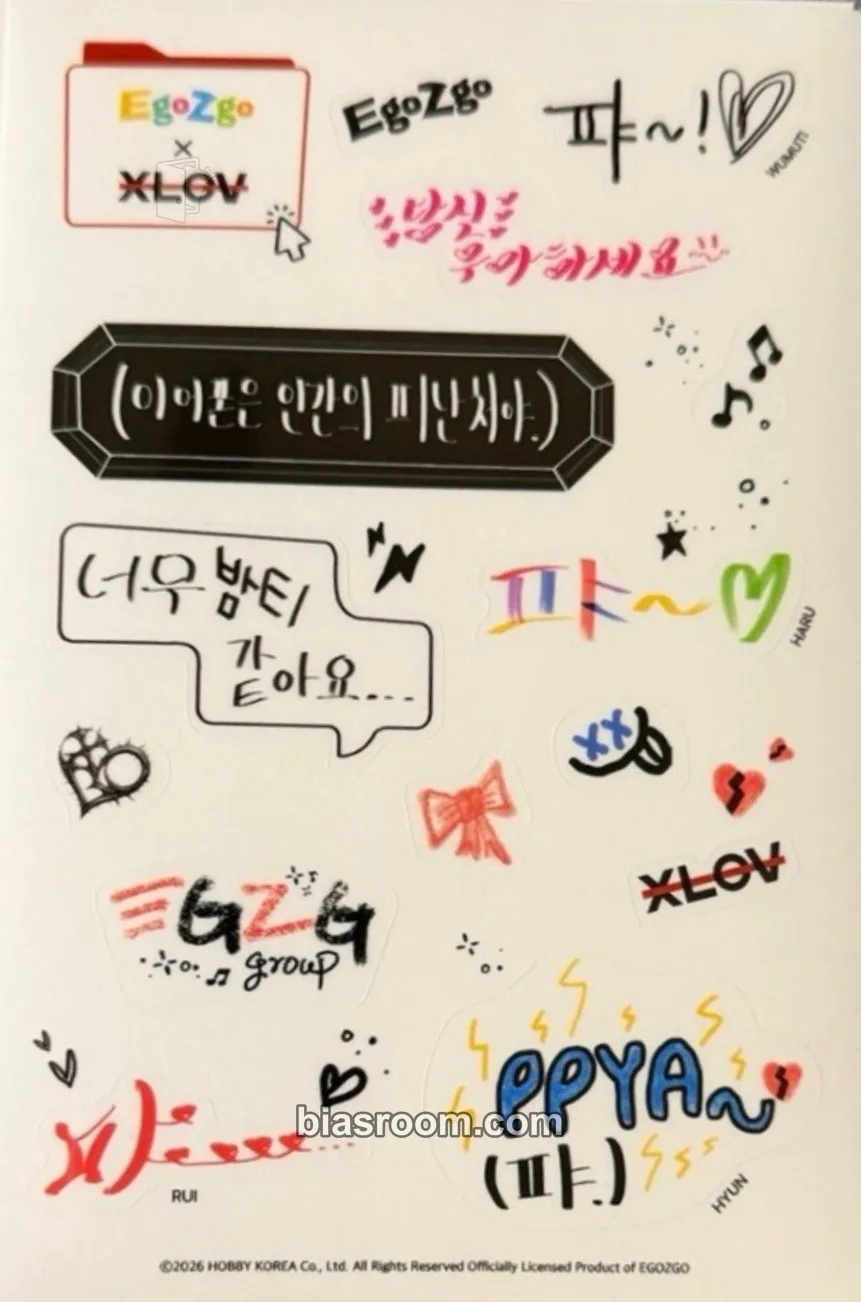 EgoZgo
×
XLOV
EgoZgo
퍄~!
WUMUTI
밤신
우아하세요
(이어폰은 인간의 피난처야.)
너무 밤티
같아요....
퍄~
HARU
XLOV
EGZG
group
퍄
RUI
PPYA~
(퍄.)
HYUN
biasroom.com
©2026 HOBBY KOREA Co., Ltd. All Rights Reserved Officially Licensed Product of EGOZGO